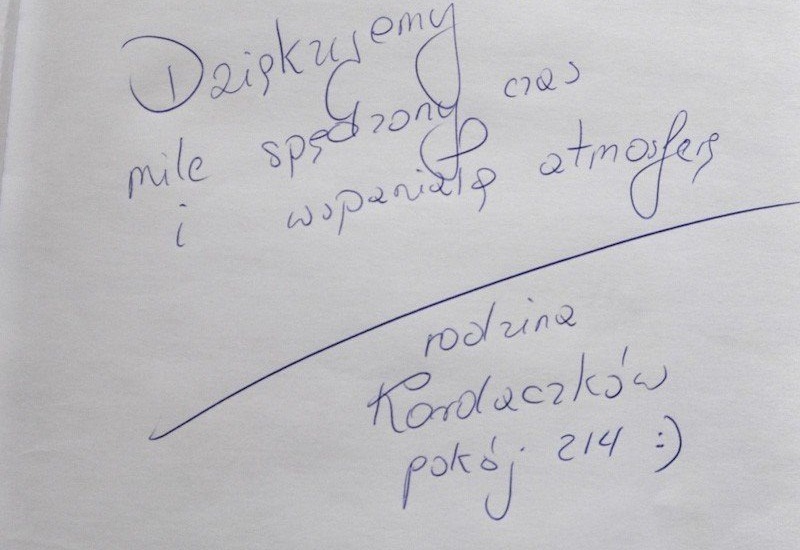 Dziękujemy
mile spędzony czas
i wspaniałą atmosferę
rodzina
Kordaczków
pokój 214 :)